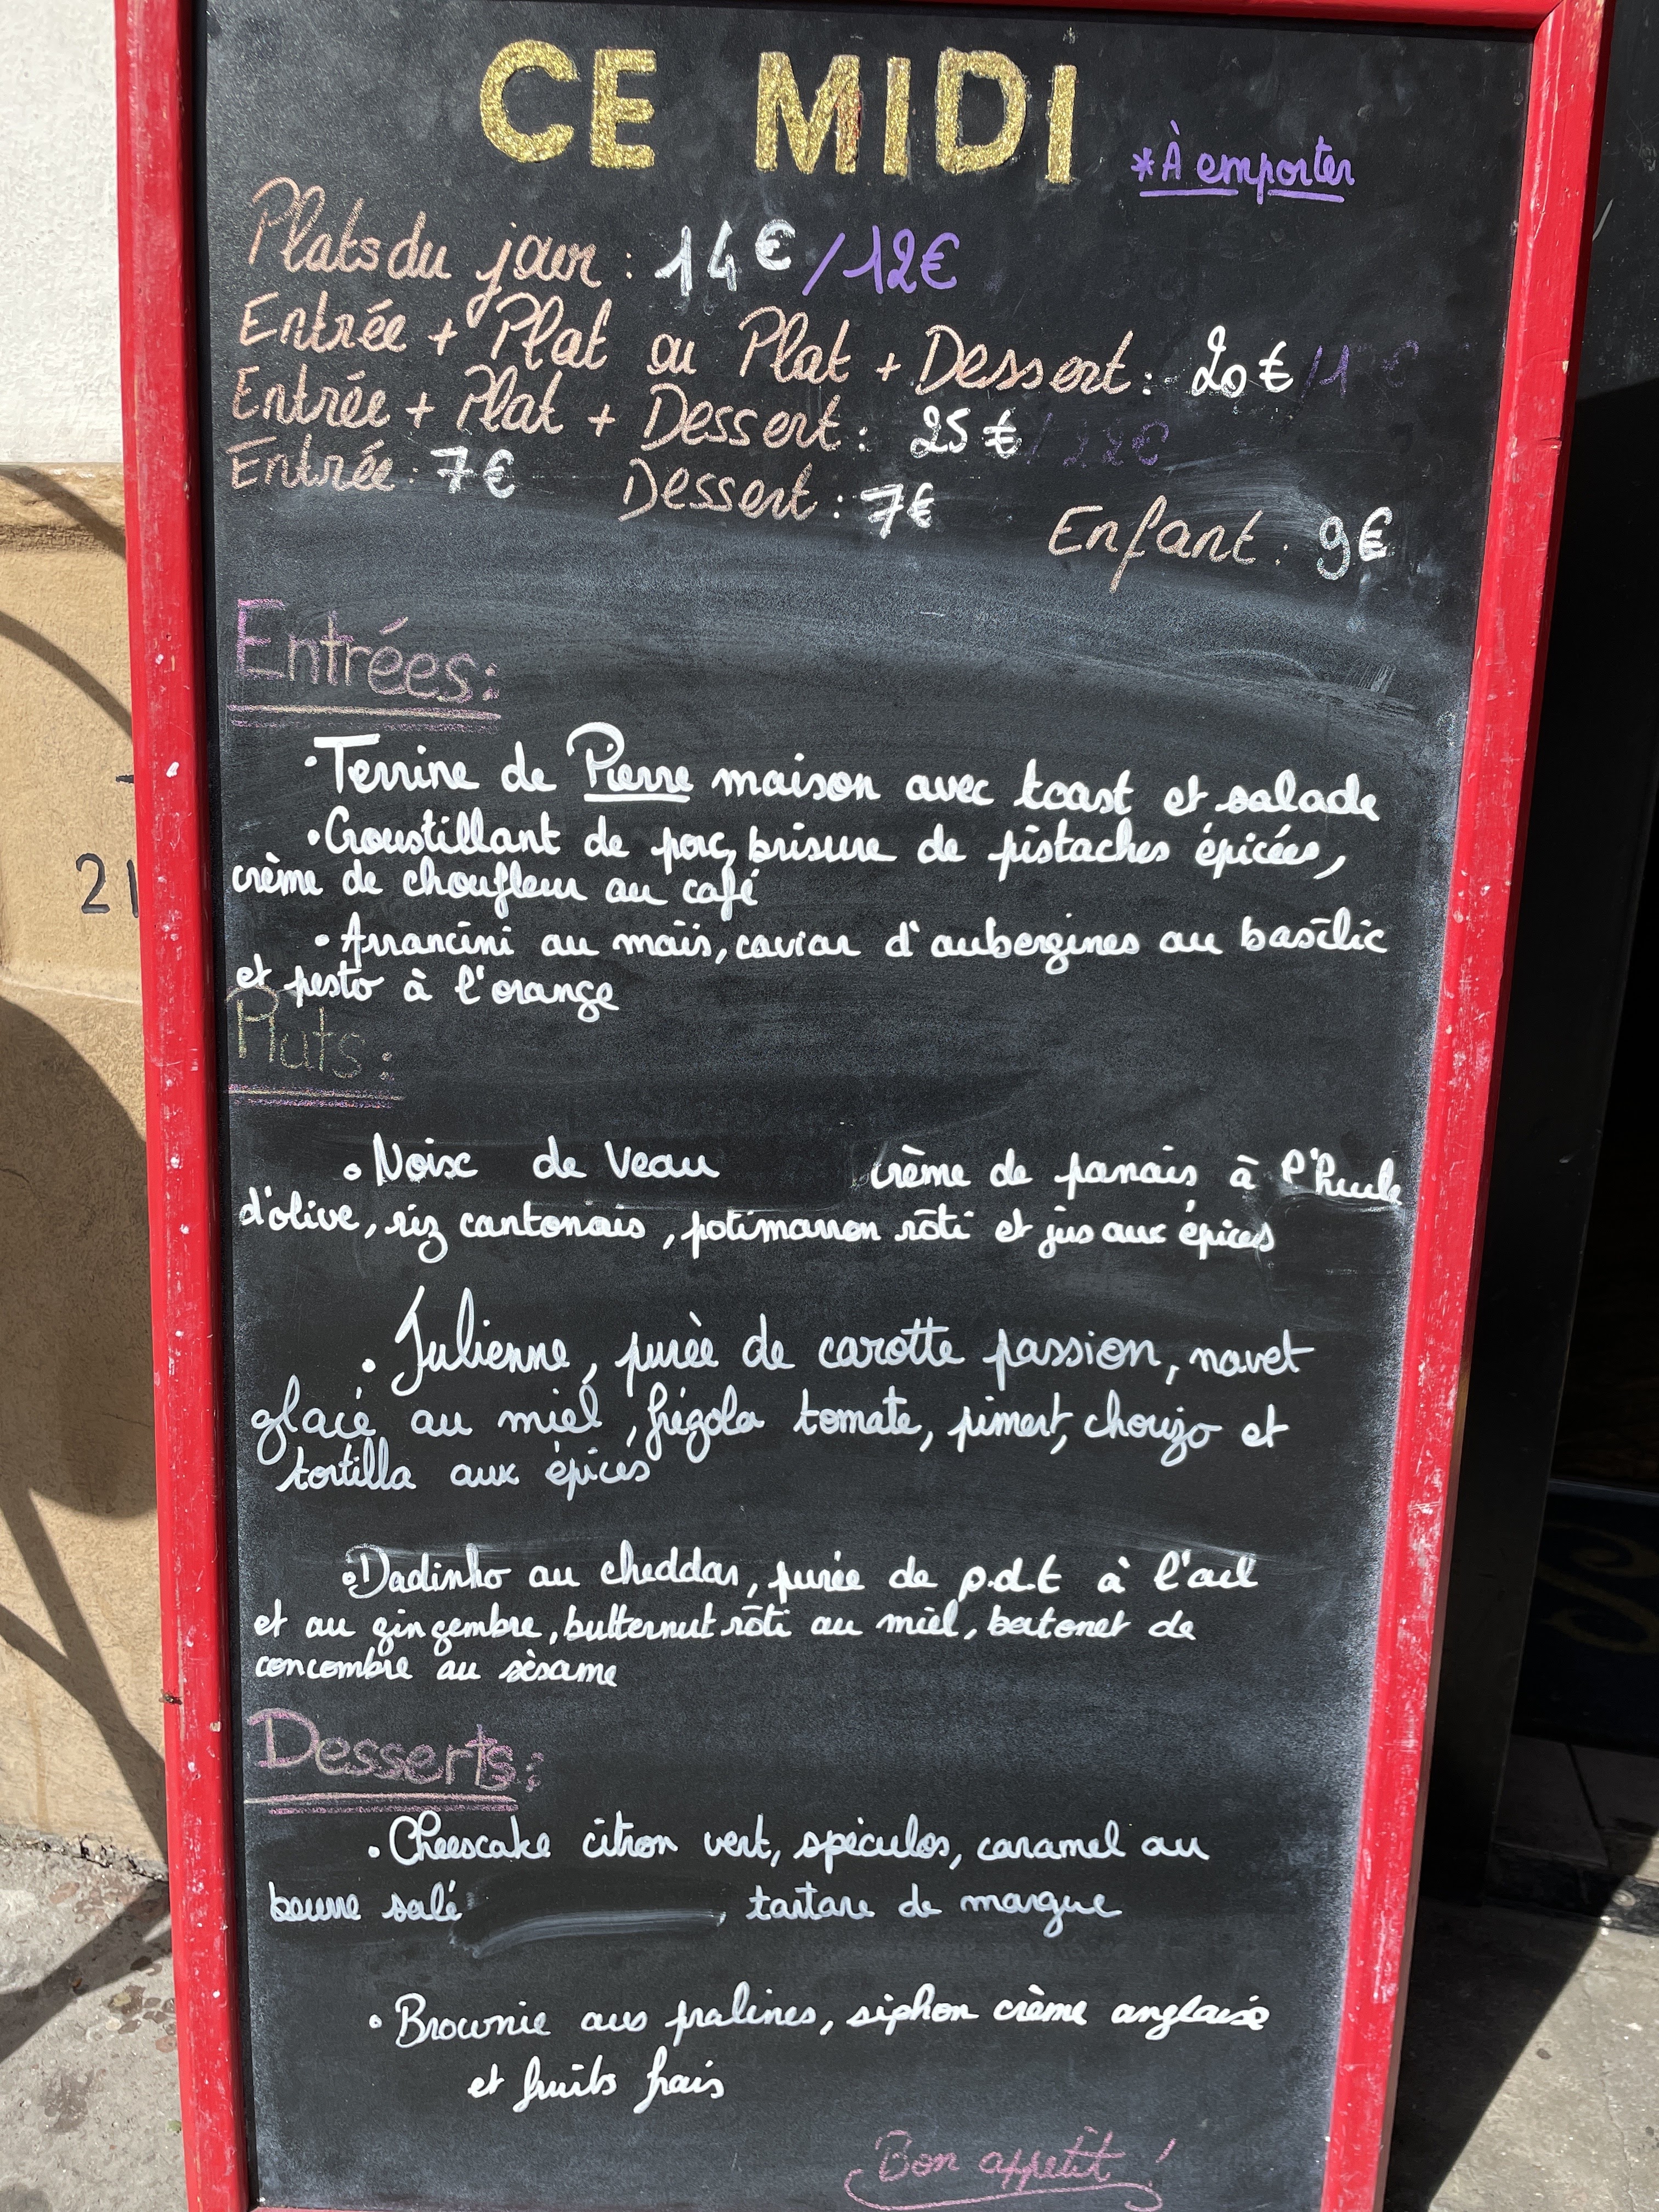 CE MIDI
*À emporter
Plats du jour : 14€ /12€
Entrée + Plat ou Plat + Dessert : 20€
Entrée + Plat + Dessert : 25€ / 22€
Entrée : 7€ Dessert : 7€ Enfant : 9€
Entrées:
• Terrine de Pierre maison avec toast et salade
• Croustillant de porc, brisure de pistaches épicées,
crème de choufleur au café
• Arrancini au maïs, caviar d'aubergines au basilic
et pesto à l'orange
Plats :
• Noix de Veau crème de panais à l'huile
d'olive, riz cantonais, potimarron rôti et jus aux épices
• Julienne, purèe de carotte passion, navet
glacé au miel, frégola tomate, piment, chorizo et
tortilla aux épices
• Dadinho au cheddar, purée de p.d.t à l'ail
et au gingembre, butternut rôti au miel, batonet de
concombre au sèsame
Desserts:
• Cheescake citron vert, spéculos, caramel au
beurre salé tartare de mangue
• Brownie aux pralines, siphon crème anglaise
et fruits frais
Bon appetit !
21